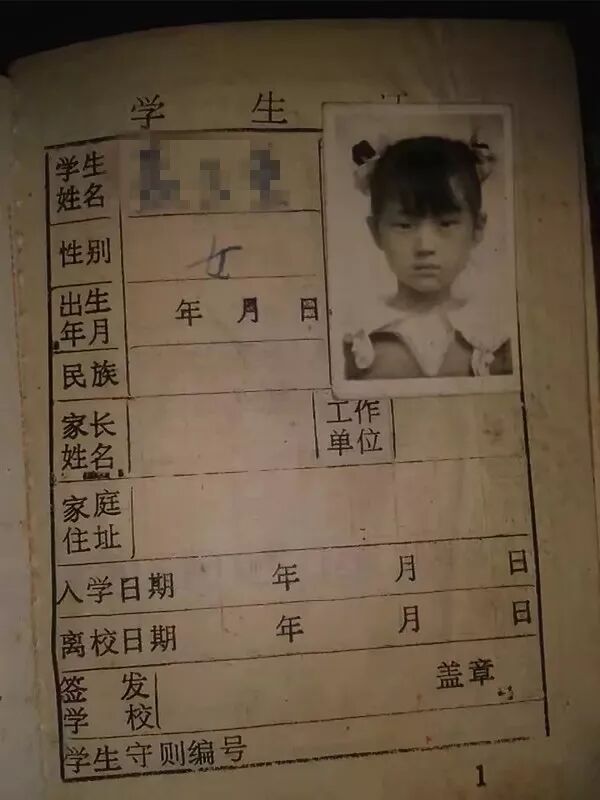 学生
学生
姓名
性别
女
出生
年月
年 月 日
民族
家长
姓名
工作
单位
家庭
住址
入学日期 年 月 日
离校日期 年 月 日
签发
学校
盖章
学生守则编号
1